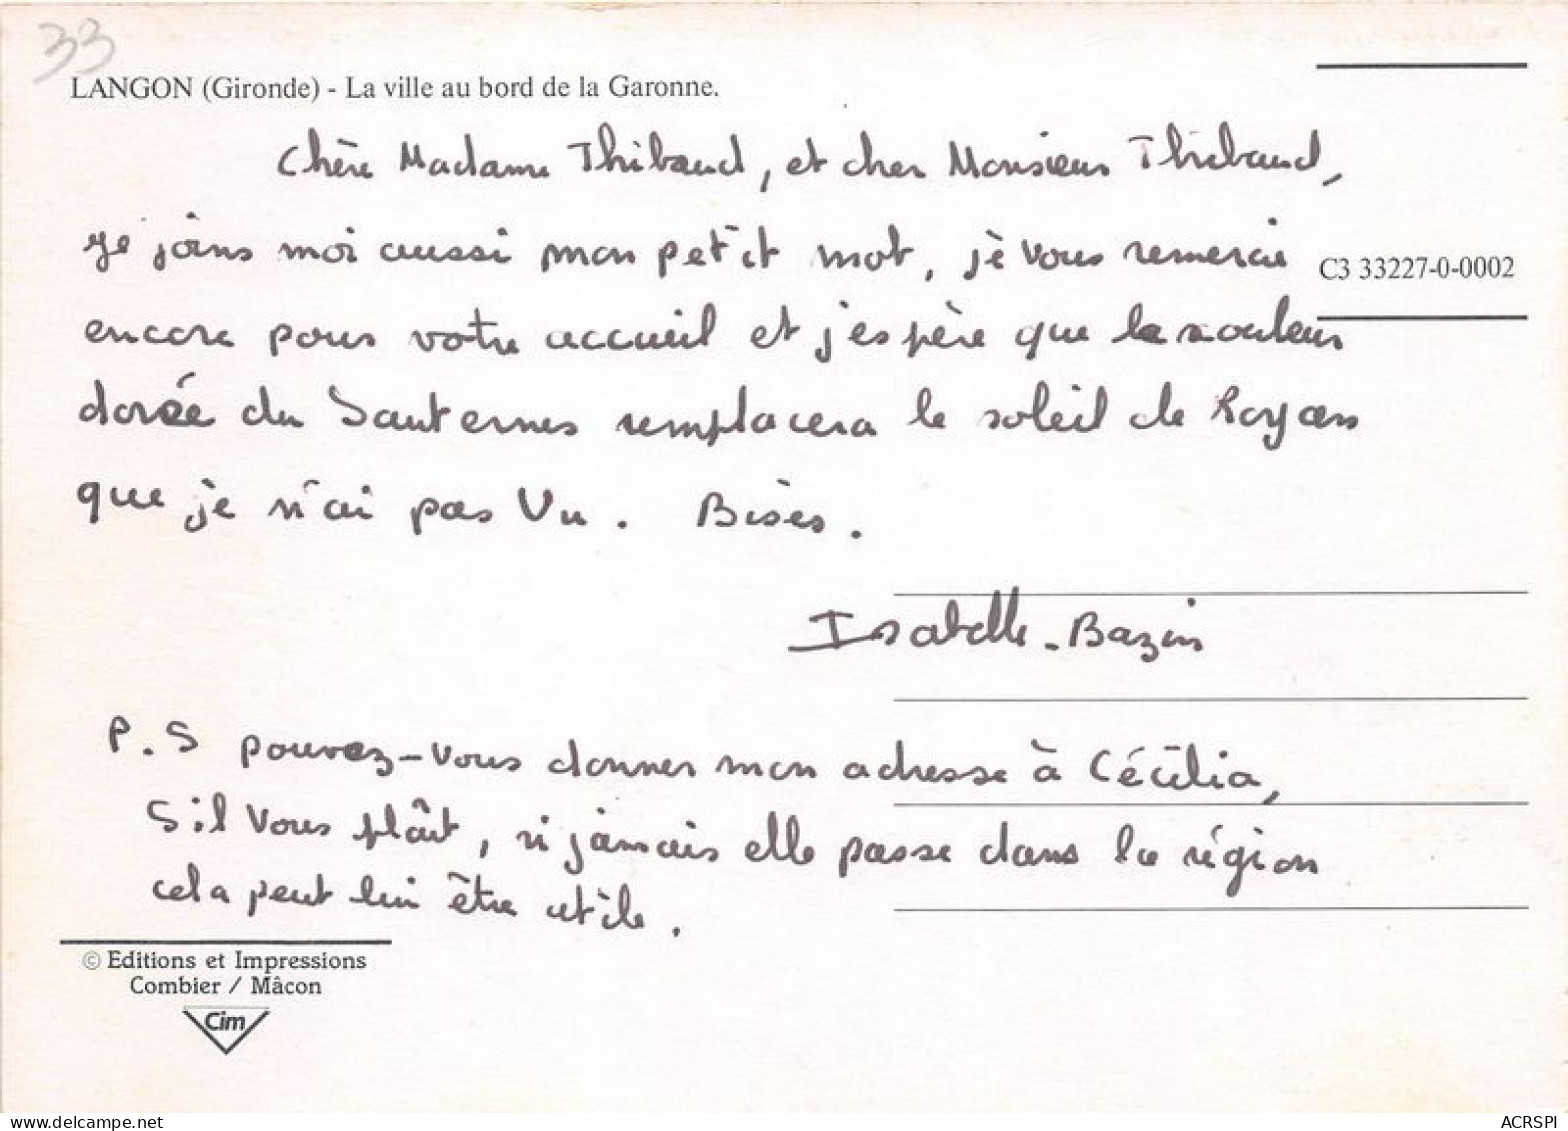 33
LANGON (Gironde) - La ville au bord de la Garonne.
Chère Madame Thibaud, et cher Monsieur Thibaud,
je joins moi aussi mon petit mot, je vous remercie
C3 33227-0-0002
encore pour votre accueil et j'espère que la couleur
dorée du Sauternes remplacera le soleil de Royan
que je n'ai pas vu. Bises.
Isabelle-Bazin
P.S pouvez-vous donner mon adresse à Cécilia,
S'il vous plâit, si jamais elle passe dans la région
cela peut lui être utile.
© Editions et Impressions
Combier / Mâcon
Cim
www.delcampe.net
ACRSPI